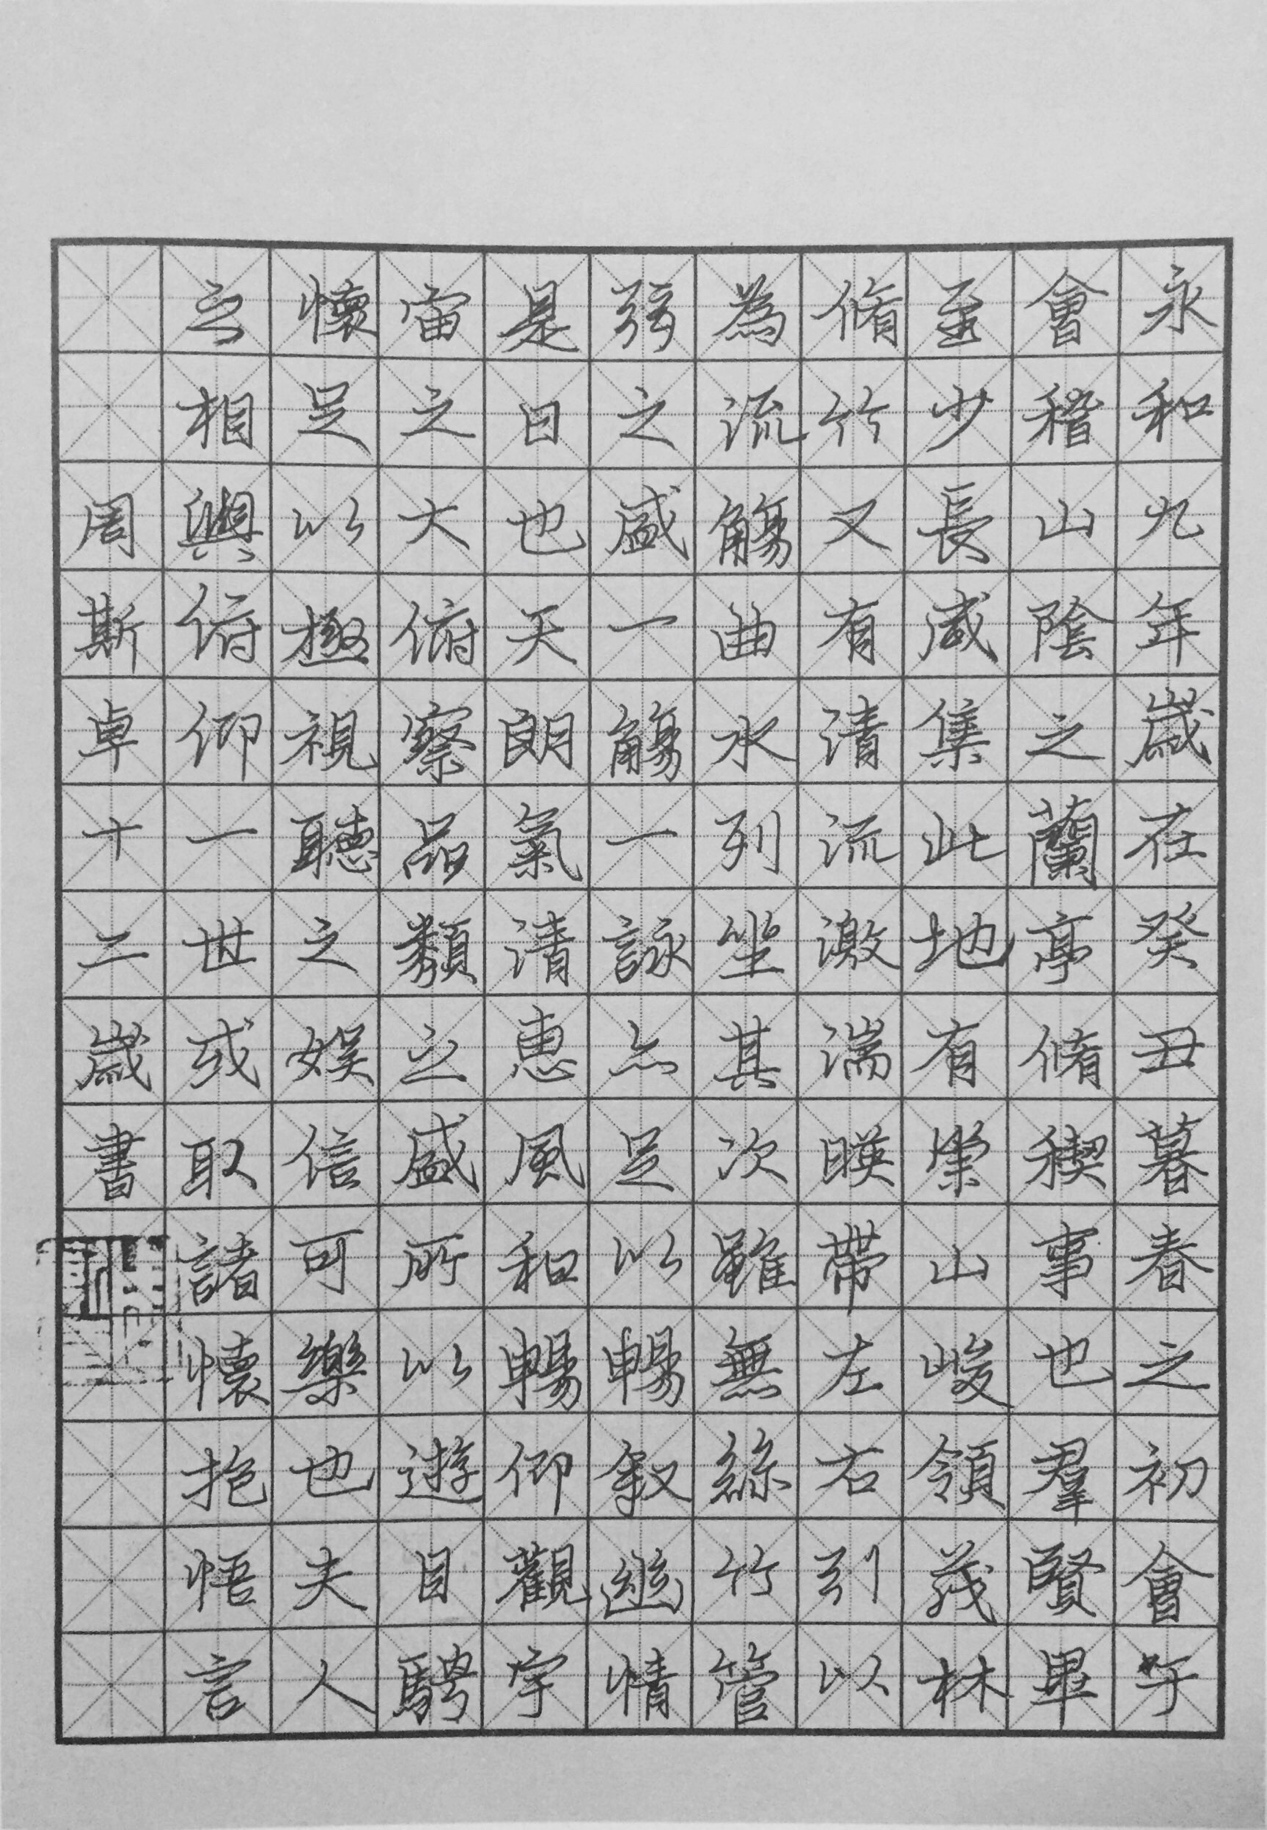 永和九年歲在癸丑暮春之初會于
會稽山陰之蘭亭脩稧事也羣賢畢
至少長咸集此地有崇山峻領茂林
脩竹又有清流激湍暎帶左右引以
為流觴曲水列坐其次雖無絲竹管
弦之盛一觴一詠亦足以暢叙幽情
是日也天朗氣清惠風和暢仰觀宇
宙之大俯察品類之盛所以遊目騁
懷足以極視聽之娛信可樂也夫人
之相與俯仰一世或取諸懷抱悟言
周斯卓十二歲書